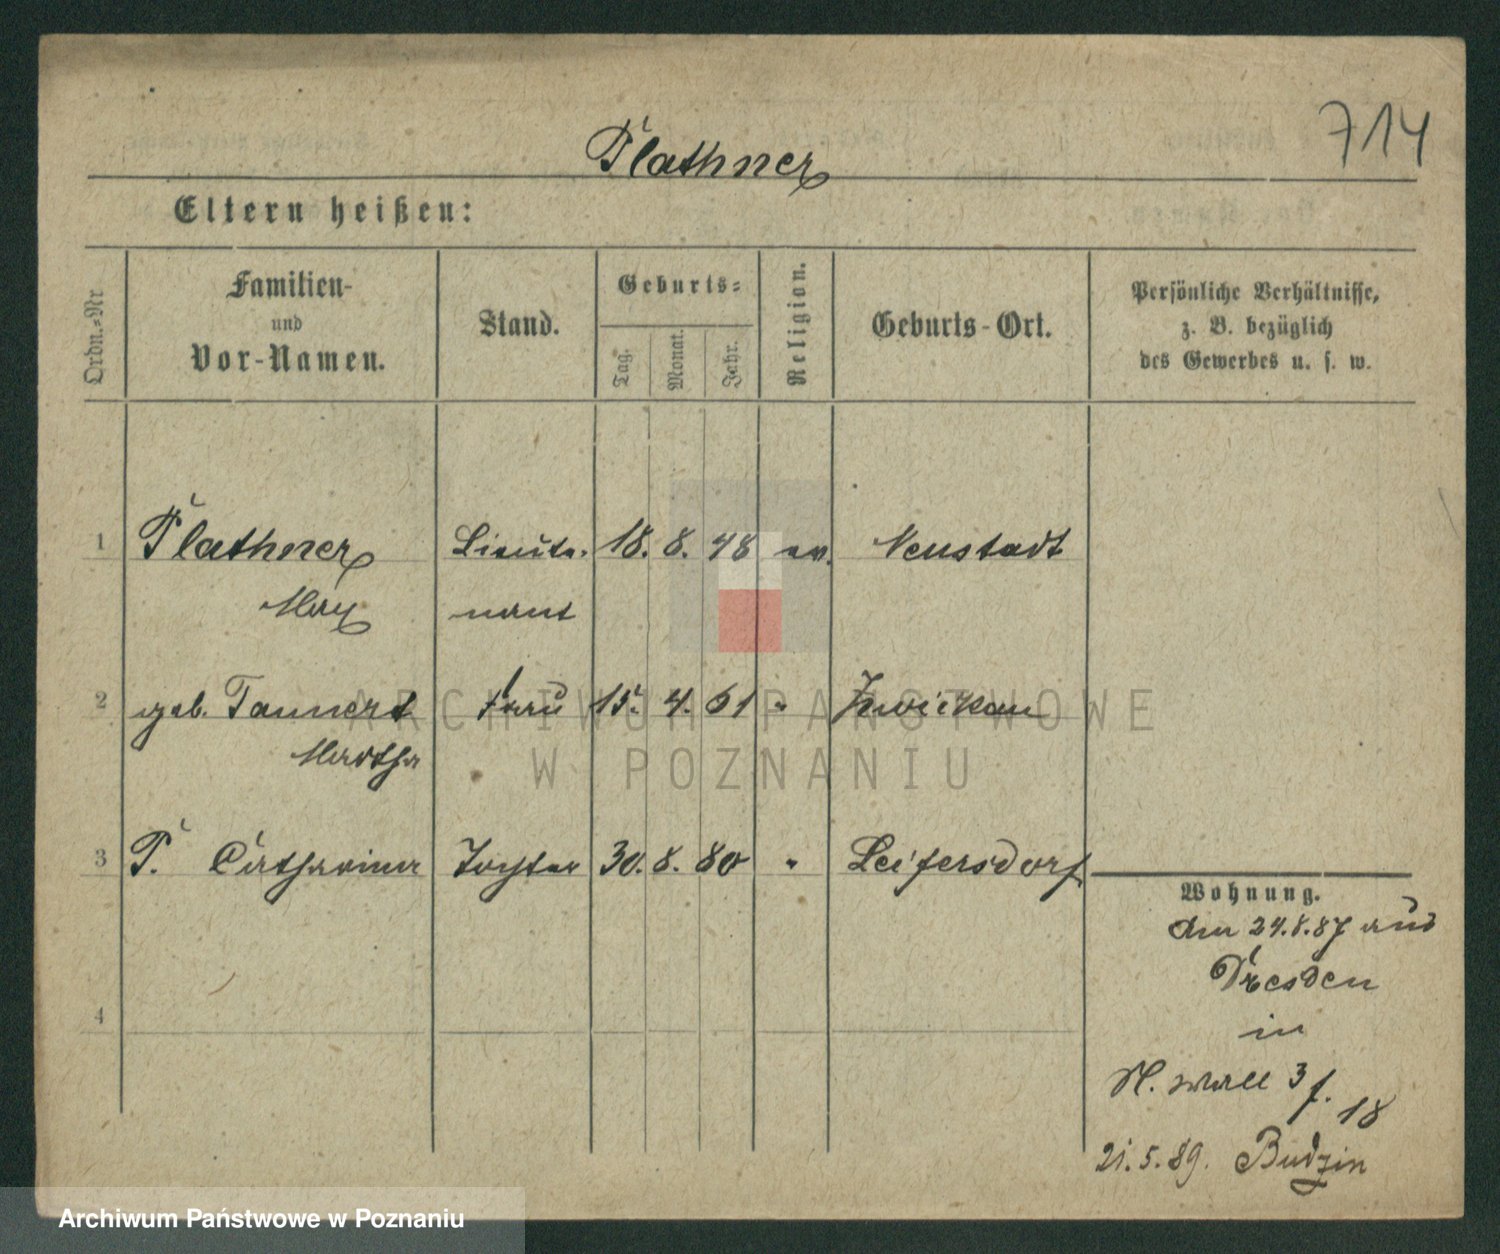 714
Plathner
Eltern heißen:
Ordn.=Nr
Familien-
und
Vor-Namen.
Stand.
Geburts=
Tag.
Monat.
Jahr.
Religion.
Geburts-Ort.
Persönliche Verhältnisse,
z. B. bezüglich
des Gewerbes u. s. w.
1 Plathner Lieute- 18. 8. 48 ev. Neustadt
Max nant
2 geb. Tannert Frau 15. 4. 61 " Zwickau
Martha
3 P. Catharina Tochter 30. 8. 80 " Leifersdorf
Wohnung.
Am 24.8.87 aus
Dresden
in
4
N. wall 3 f.
18
21.5.89. Budzin
ARCHIWUM PAŃSTWOWE
W POZNANIU
Archiwum Państwowe w Poznaniu